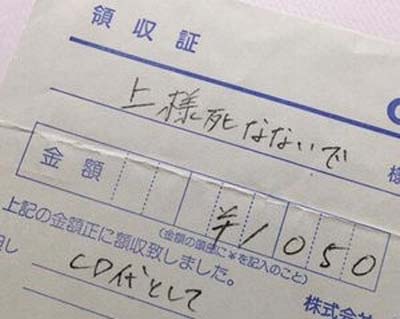 領収証
上様死なないで 様
金額 ¥1050
(金額の頭部に¥を記入のこと)
上記の金額正に額収致しました。
但し CD代として
株式会社